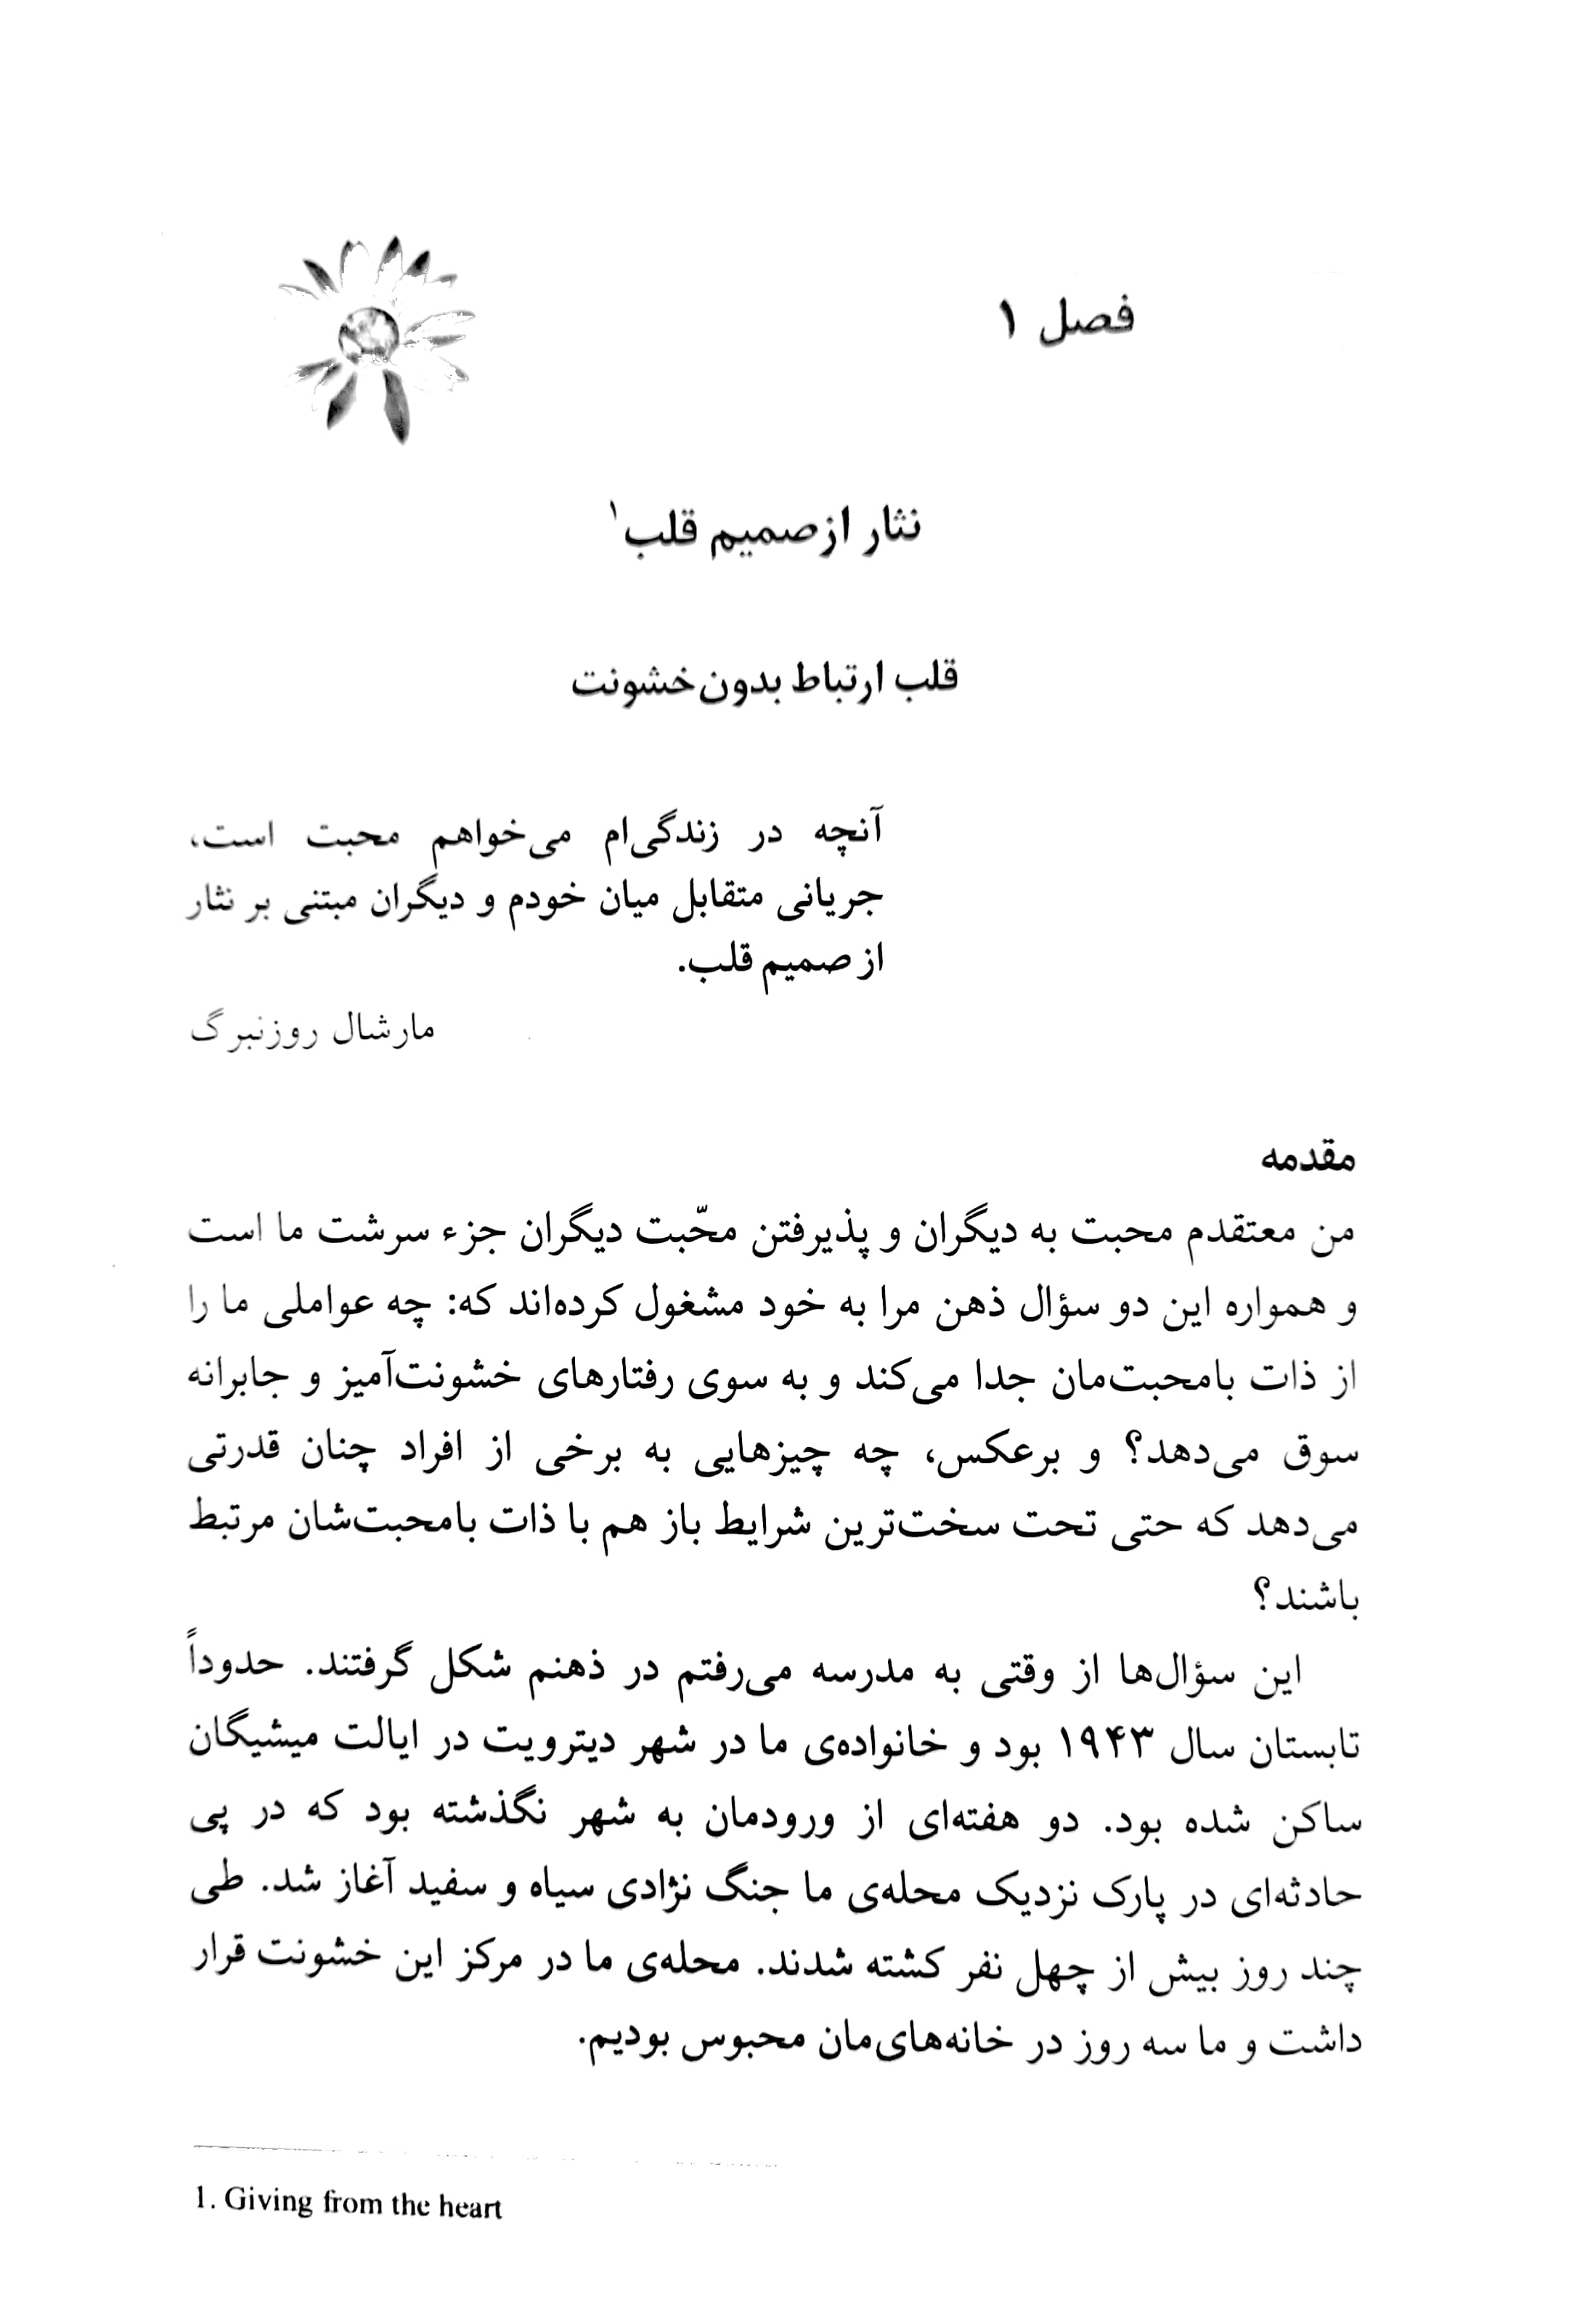 فصل ۱
نثار از صمیم قلب۱
قلب ارتباط بدون خشونت
آنچه در زندگی‌ام می‌خواهم محبت است،
جریانی متقابل میان خودم و دیگران مبتنی بر نثار
از صمیم قلب.
مارشال روزنبرگ
مقدمه
من معتقدم محبت به دیگران و پذیرفتن محّبت دیگران جزء سرشت ما است
و همواره این دو سؤال ذهن مرا به خود مشغول کرده‌اند که: چه عواملی ما را
از ذات بامحبت‌مان جدا می‌کند و به سوی رفتارهای خشونت‌آمیز و جابرانه
سوق می‌دهد؟ و برعکس، چه چیزهایی به برخی از افراد چنان قدرتی
می‌دهد که حتی تحت سخت‌ترین شرایط باز هم با ذات بامحبت‌شان مرتبط
باشند؟
این سؤال‌ها از وقتی به مدرسه می‌رفتم در ذهنم شکل گرفتند. حدوداً
تابستان سال ۱۹۴۳ بود و خانواده‌ی ما در شهر دیترویت در ایالت میشیگان
ساکن شده بود. دو هفته‌ای از ورودمان به شهر نگذشته بود که در پی
حادثه‌ای در پارک نزدیک محله‌ی ما جنگ نژادی سیاه و سفید آغاز شد. طی
چند روز بیش از چهل نفر کشته شدند. محله‌ی ما در مرکز این خشونت قرار
داشت و ما سه روز در خانه‌های‌مان محبوس بودیم.
1. Giving from the heart